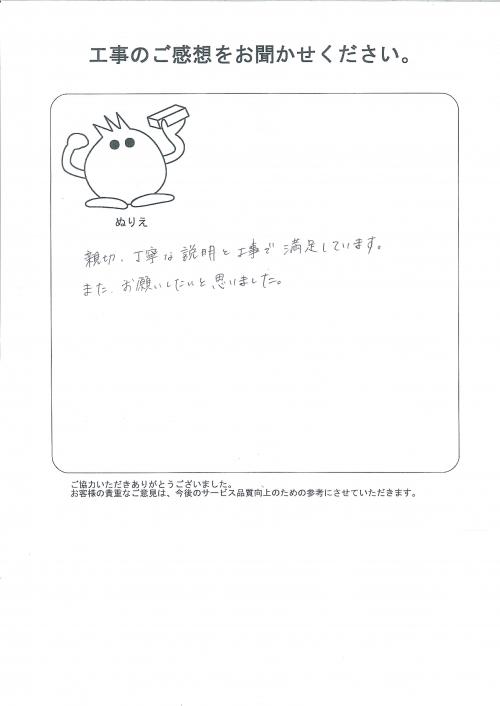 工事のご感想をお聞かせください。
ぬりえ
親切、丁寧な説明と工事で満足しています。
また、お願いしたいと思いました。
ご協力いただきありがとうございました。
お客様の貴重なご意見は、今後のサービス品質向上のための参考にさせていただきます。